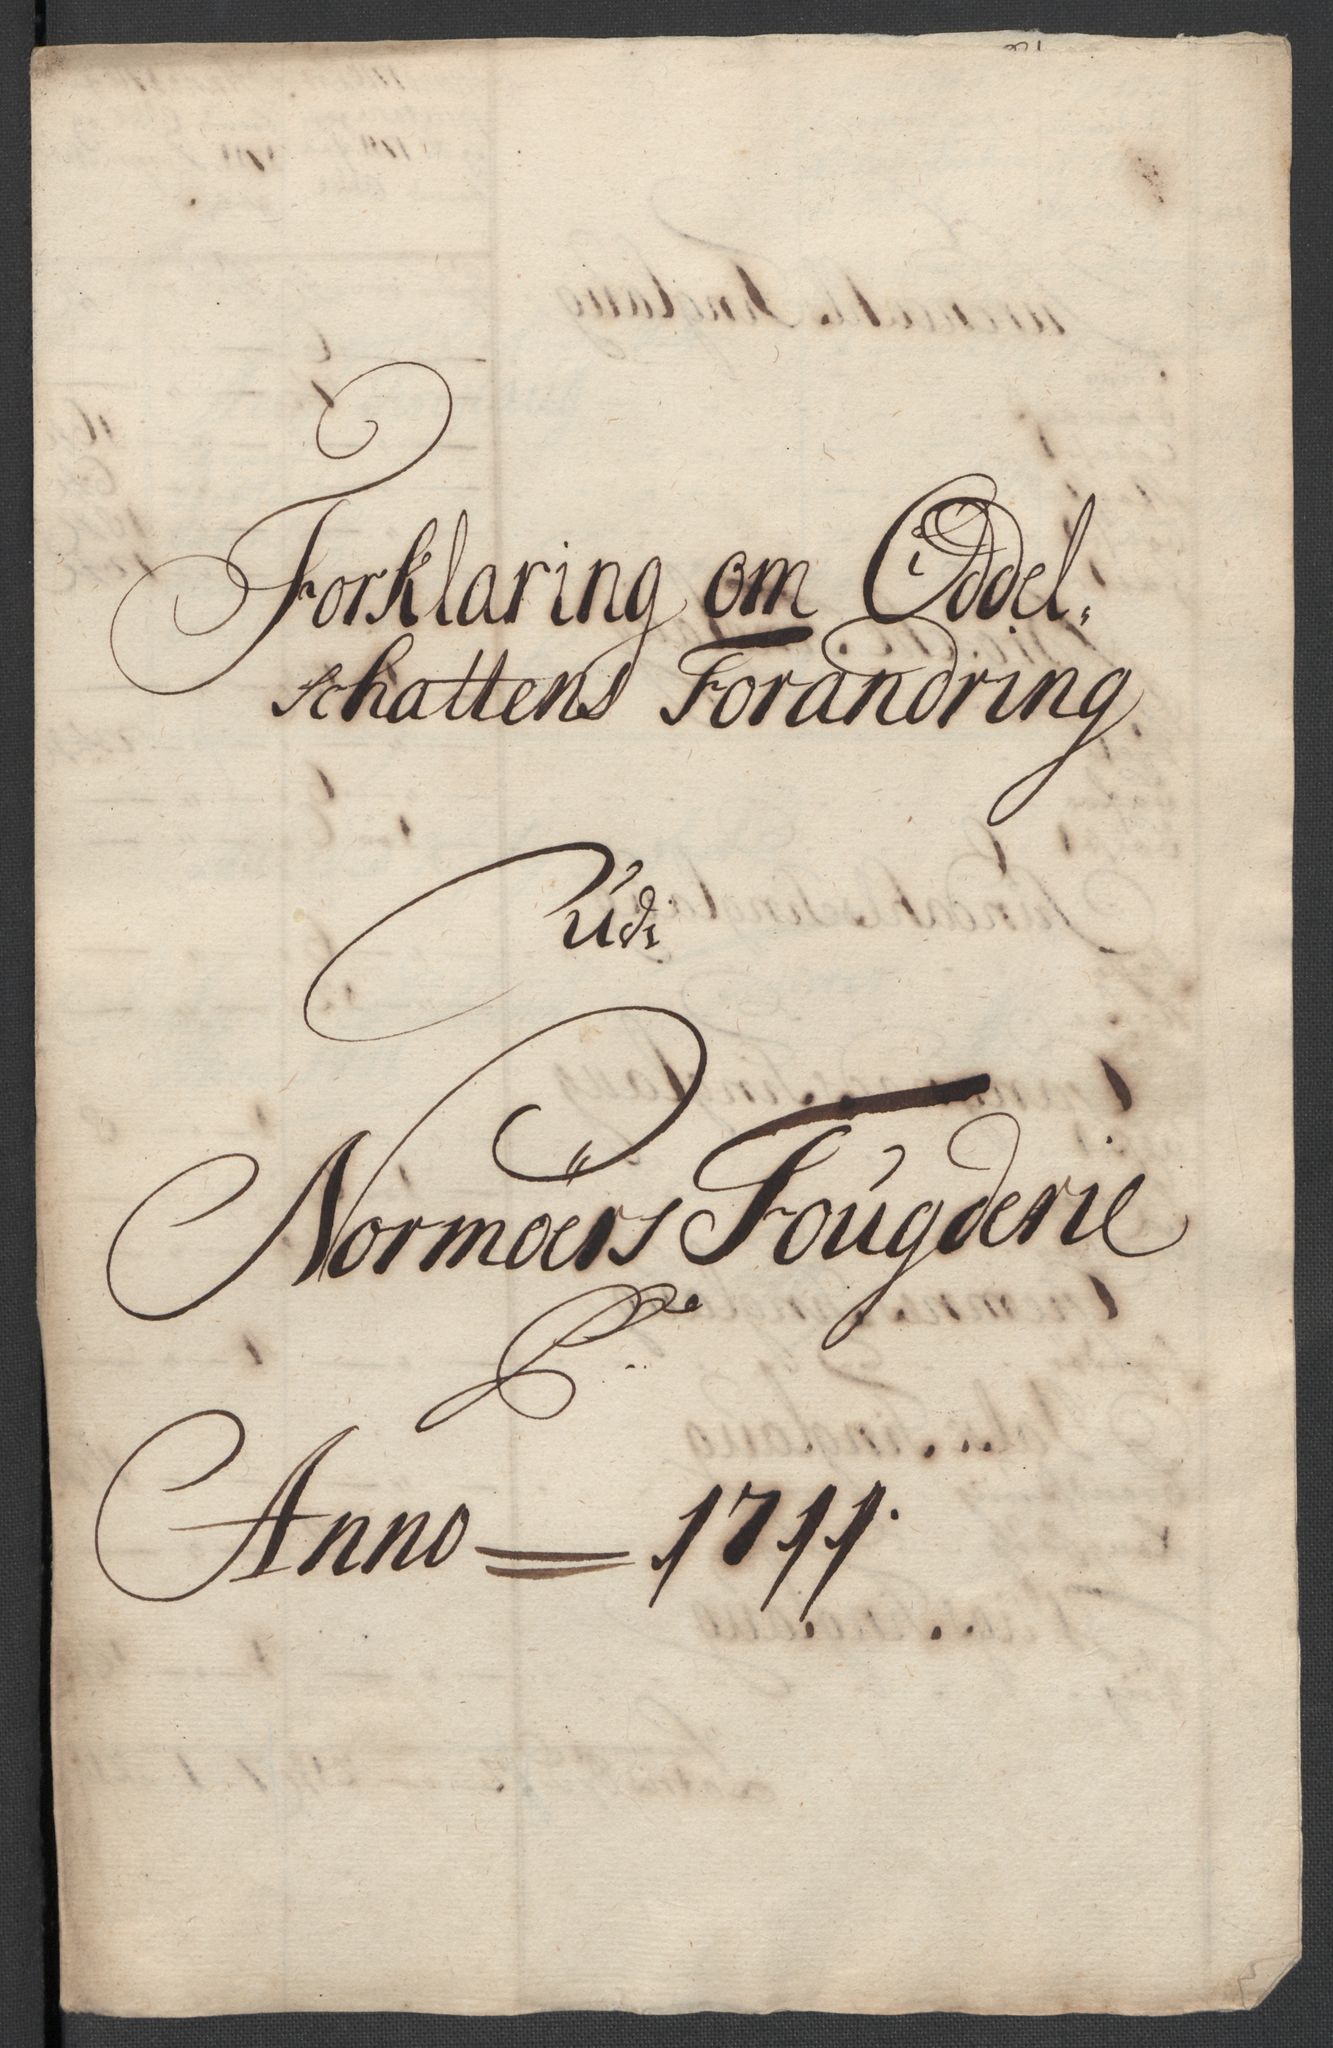 Forklaring om Oddel-
schattens Forandring
Udi
Normøers Fougderie
Anno = 1711.